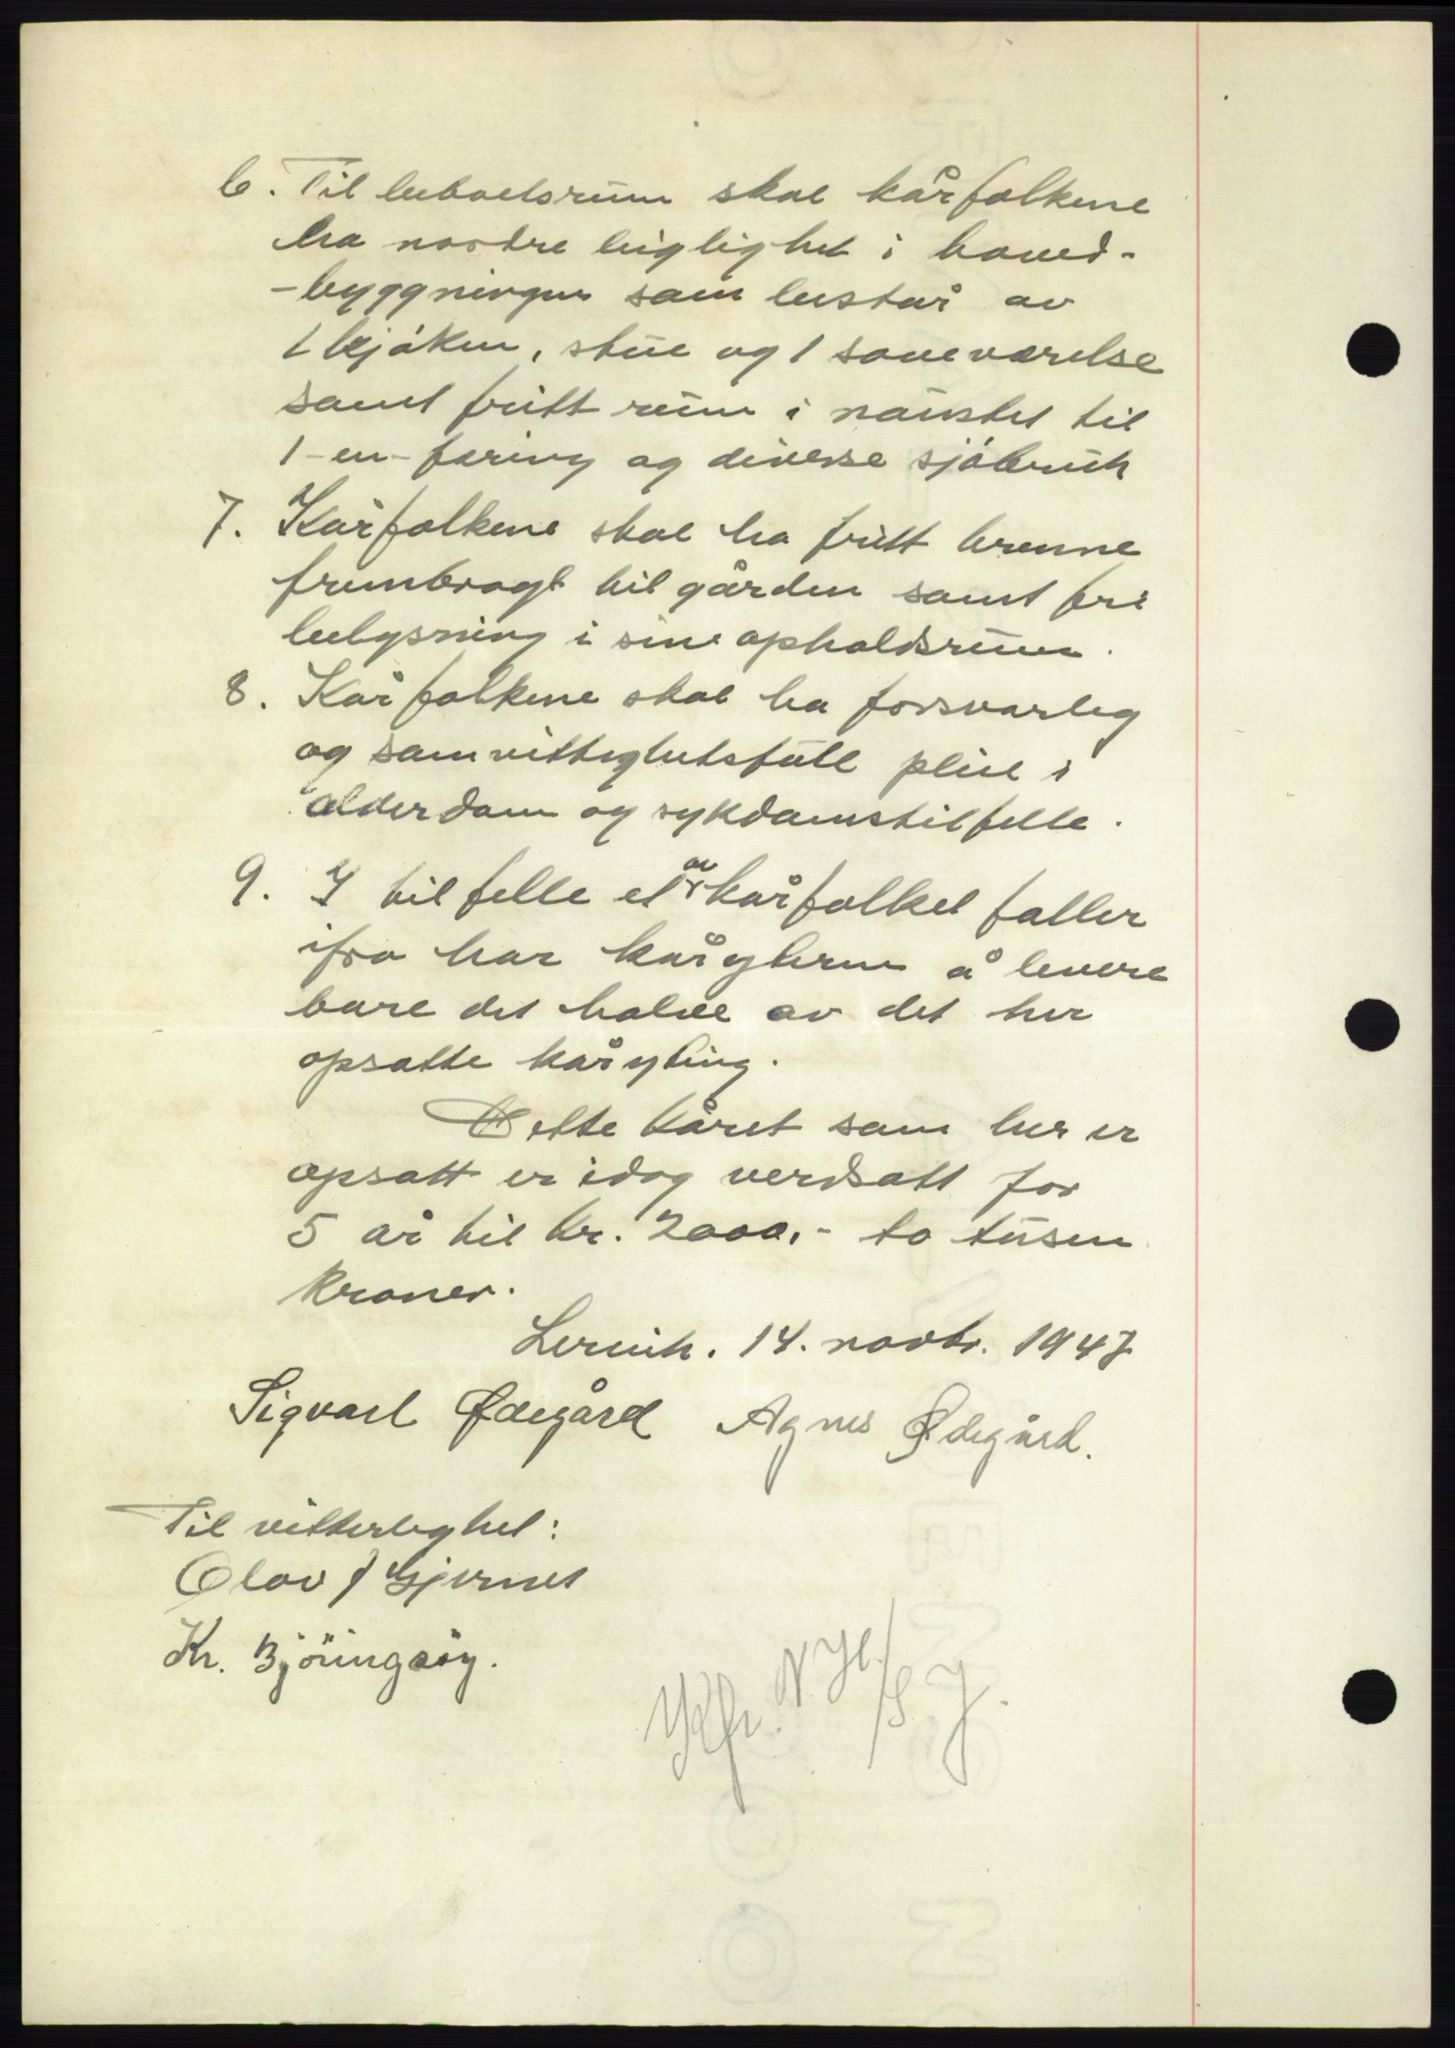 6. Til beboelsrum skal kårfolkene
ha nordre leiglighet i hoved-
-byggningen som består av
1 kjøken, stue og 1 soveværelse
samt fritt rum i naustet til
1 - en - færing og diverse sjøbruk
7. Kårfolkene skal ha fritt brenne
frembragt til gården samt fri
belysning i sine opholdsrum.
8. Kårfolkene skal ha forsvarleg
og samvittighetsfull pleie i
alderdom og sykdomstilfelle.
9. I tilfelle et av kårfolket faller
ifra har kårytern å levere
bare det halve av det her
opsatte kåryting.
Dette kåret som her er
opsatt er idag verdsatt for
5 år til kr. 2000,- to tusen
kroner.
Lervik. 14. novbr. 1947
Sigvart Ødegård Agnes Ødegård.
Til vitterleghet:
Olav J Gjernes
Kr. Björingsöy.